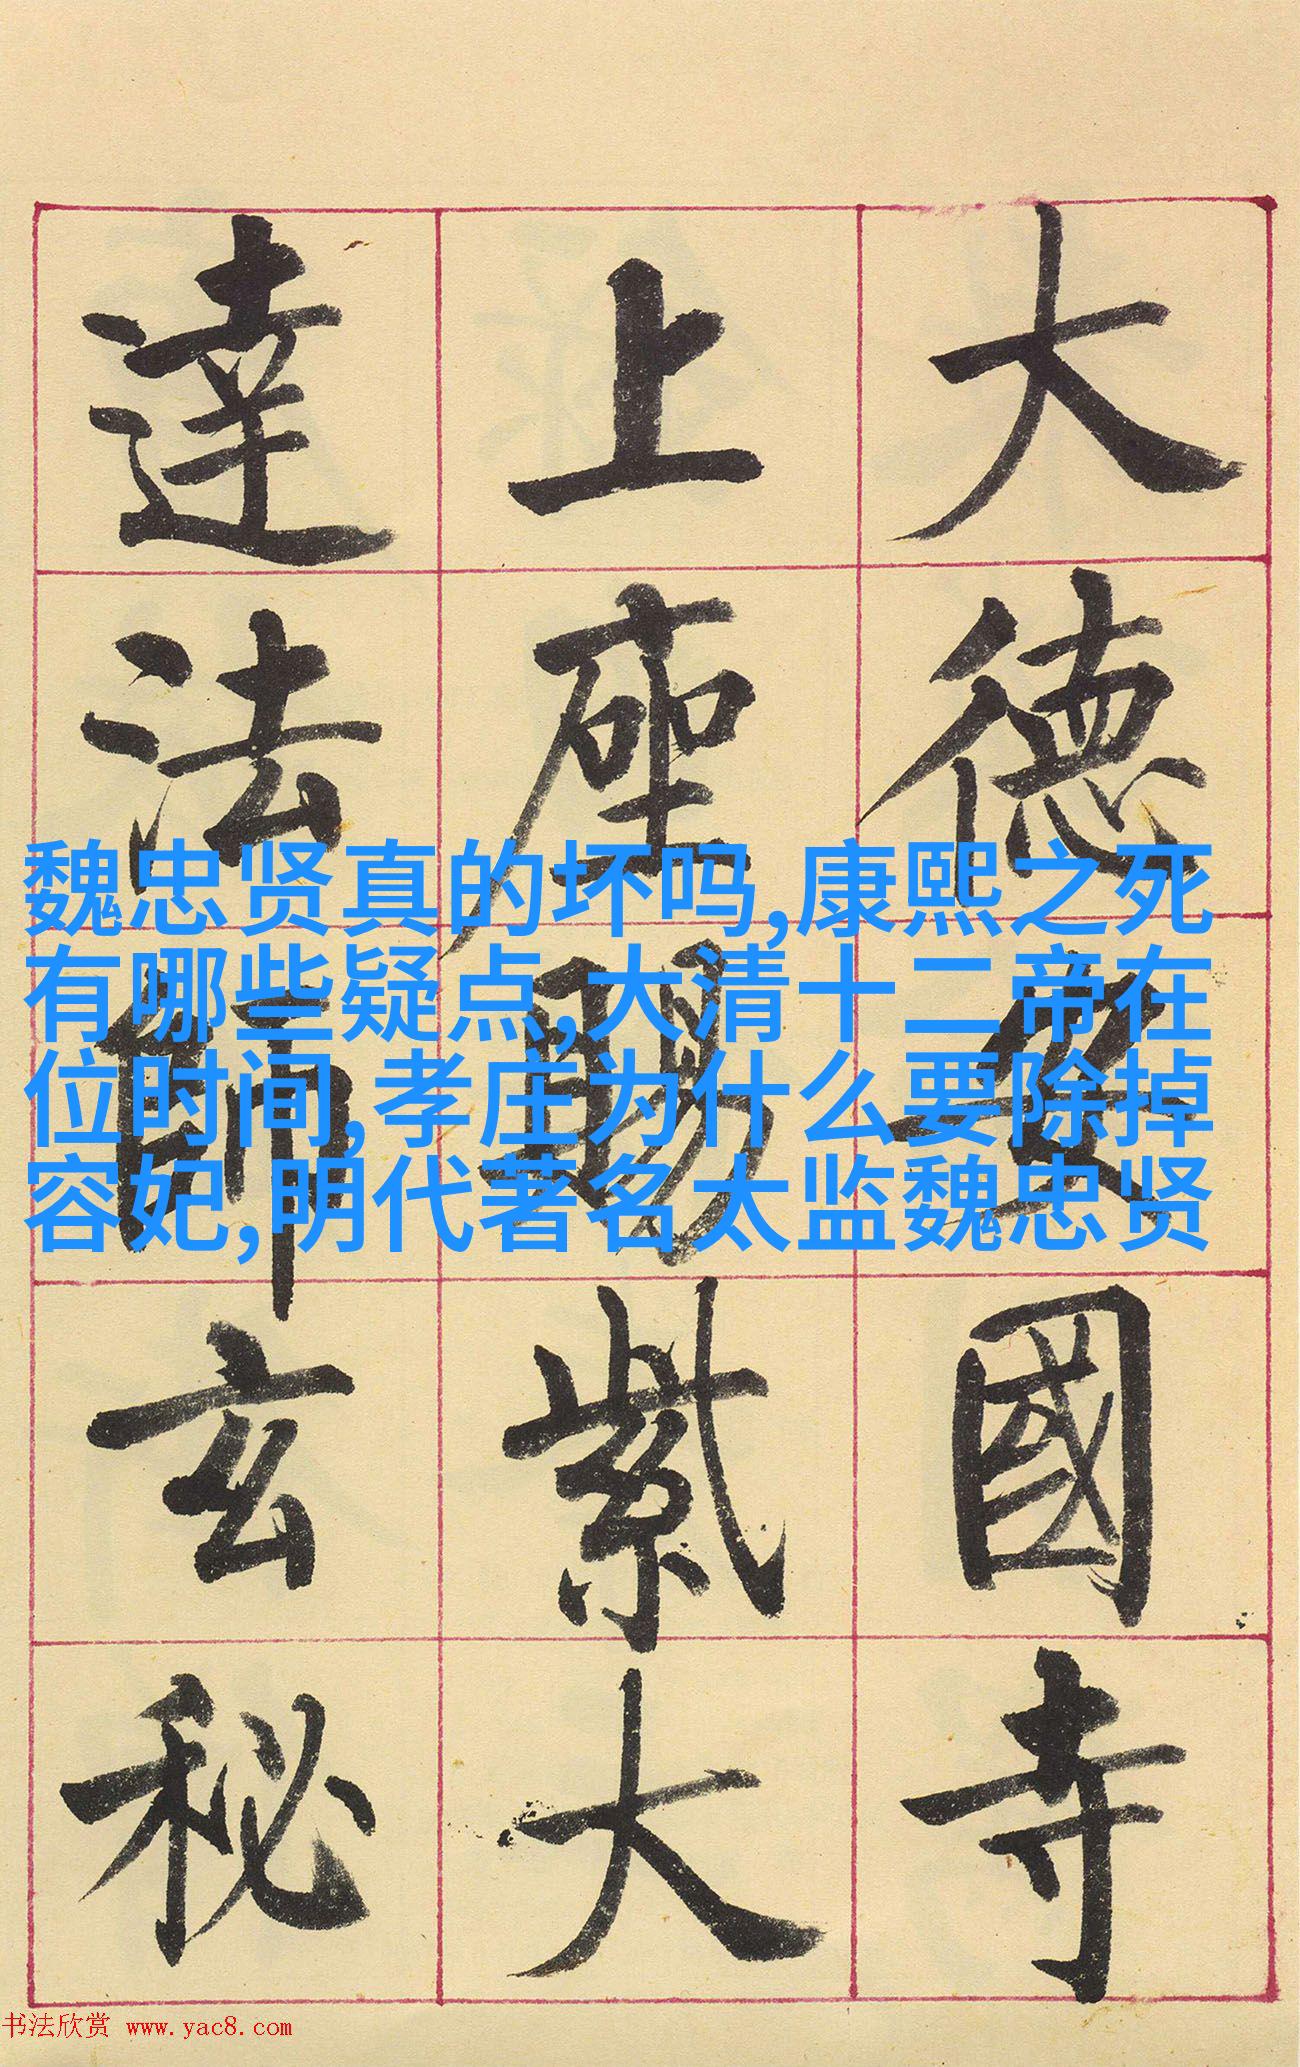 大德安國寺
上座賜紫大
達法師玄秘
魏忠贤真的坏吗,康熙之死
有哪些疑点,大清十二帝在
位时间,孝庄为什么要除掉
容妃,明代著名太监魏忠贤
书法欣赏 www.yac8.com